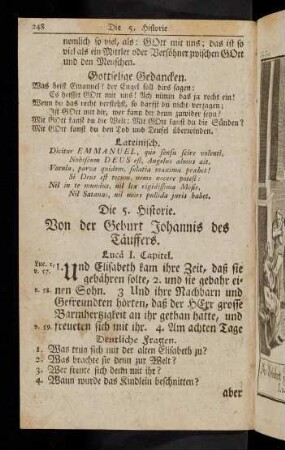 248 Die 5. Historie
nemlich so viel, als: GOtt mit uns; das ist so
viel als ein Mittler oder Versöhner zwischen GOtt
und den Menschen.
Gottselige Gedancken.
Was heist Emanuel? der Engel soll dirs sagen:
Es heisset GOtt mit uns! Ach nimm das ja recht ein!
Wenn du das recht verstehst, so darfst du nicht verzagen;
Ist GOtt mit dir, wer kann dir denn zuwider seyn?
Mit GOtt kanst du die Welt; Mit GOtt kanst du die Sünden?
Mit GOtt kanst du den Tod und Teufel überwinden.
Lateinisch.
Dicitur EMMANUEL, quo sensu scire volenti,
Nobiscum DEUS est, Angelus almus ait.
Vocula, parva quidem, solatia maxima præbet!
Si Deus est tecum, nemo nocere potest:
Nil in te mundus, nil lex rigidissima Mosis,
Nil Satanas, nil mors pallida juris habet.
Die 5. Historie.
Von der Geburt Johannis des
Täuffers.
Lucä I. Capitel.
Luc. 1, v. 57. 1. Und Elisabeth kam ihre Zeit, daß sie
gebähren solte, 2. und sie gebahr ei-
v. 58. nen Sohn. 3 Und ihre Nachbarn und
Gefreundten hörten, daß der HErr grosse
Barmhertzigkeit an ihr gethan hatte, und
v. 59. freueten sich mit ihr. 4. Am achten Tage
Deutliche Fragen.
1. Was trug sich mit der alten Elisabeth zu?
2. Was brachte sie denn zur Welt?
3. Wer freute sich denn mit ihr?
4. Wann wurde das Kindlein beschnitten?
aber